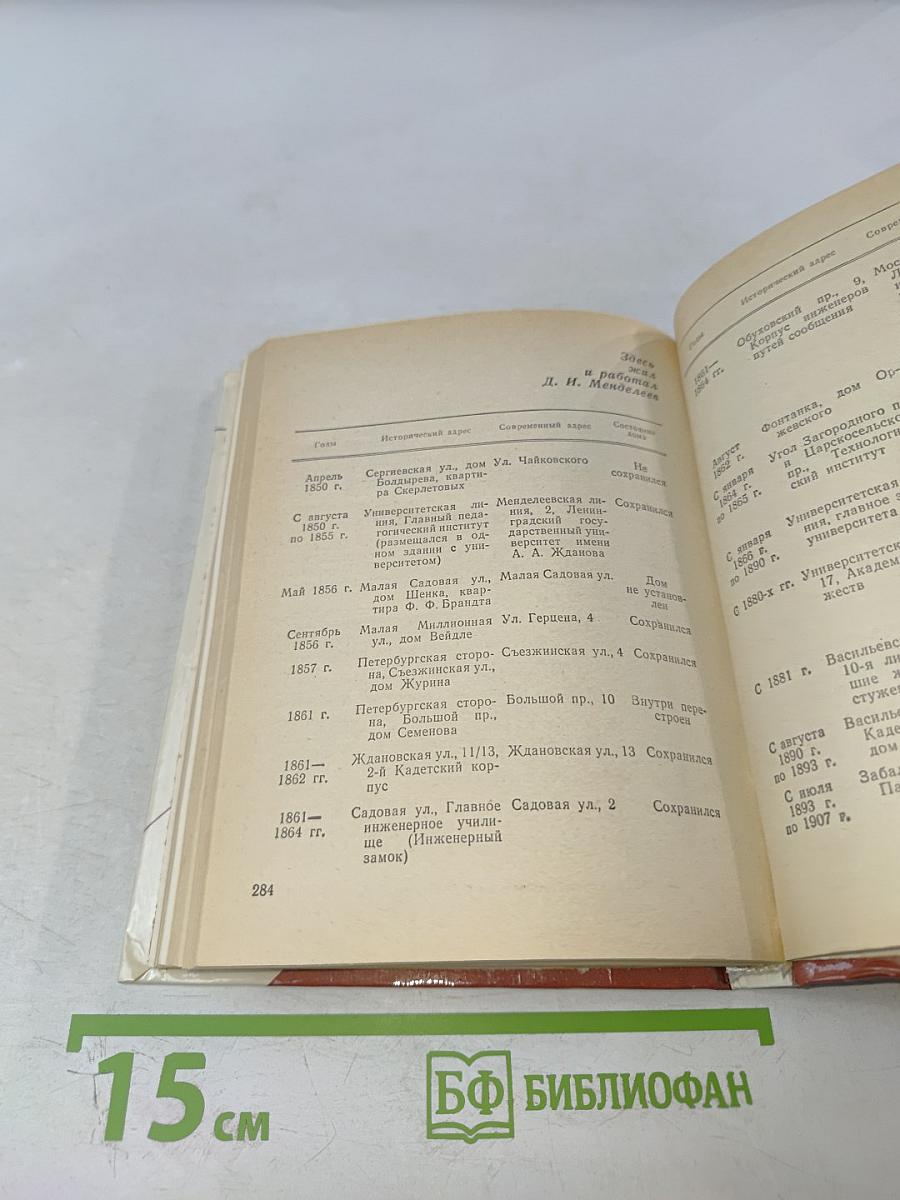 Здесь
жил
и работал
Д. И. Менделеев
Годы Исторический адрес Современный адрес Состояние дома
Апрель 1850 г. Сергиевская ул., дом Болдырева, кварти-ра Скерлетовых Ул. Чайковского Не сохранился
С августа 1850 г. по 1855 г. Университетская ли-ния, Главный педа-гогический институт (размещался в од-ном здании с уни-верситетом) Менделеевская ли-ния, 2, Ленин-градский госу-дарственный уни-верситет имени А. А. Жданова Сохранился
Май 1856 г. Малая Садовая ул., дом Шенка, квар-тира Ф. Ф. Брандта Малая Садовая ул. Дом не установ-лен
Сентябрь 1856 г. Малая Миллионная ул., дом Вейдле Ул. Герцена, 4 Сохранился
1857 г. Петербургская сторо-на, Съезжинская ул., дом Журина Съезжинская ул., 4 Сохранился
1861 г. Петербургская сторо-на, Большой пр., дом Семенова Большой пр., 10 Внутри пере-строен
1861— 1862 гг. Ждановская ул., 11/13, 2-й Кадетский кор-пус Ждановская ул., 13 Сохранился
1861— 1864 гг. Садовая ул., Главное инженерное учили-ще (Инженерный замок) Садовая ул., 2 Сохранился
284
Годы Исторический адрес
1861— 1864 гг. Обуховский пр., 9, Корпус инженеров путей сообщения
Август 1862 г. Фонтанка, дом Ор-жевского
С января 1864 г. по 1865 г. Угол Загородного и Царскосельского пр., Технологи-ский институт
С января 1866 г. по 1890 г. Университетская ния, главное университета
С 1880-х гг. 17, Академ жеств
С 1881 г. 10-я ли шие стужен
С августа 1890 г. по 1893 г. Каде дом
С июля 1893 г. по 1907 г. Забал Па
15 см
БФ БИБЛИОФАН